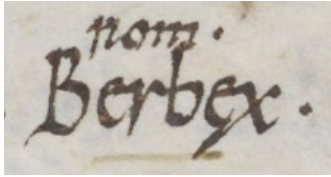 nom.
Berbęx.